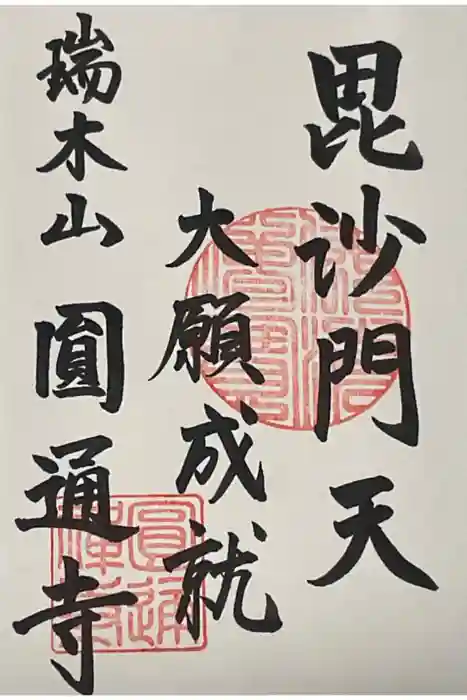 毘沙門天
大願成就
瑞木山 圓通寺